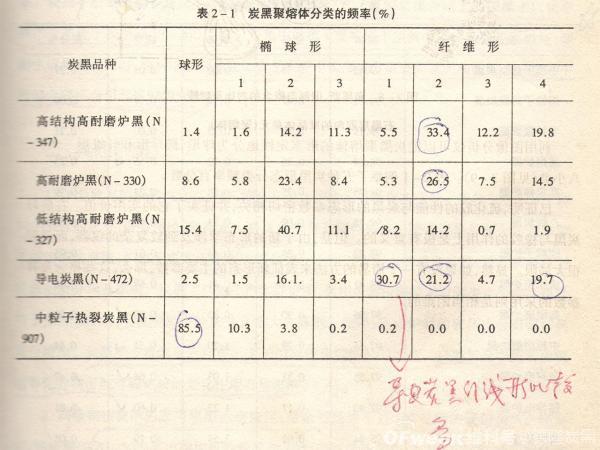 表2-1 炭黑聚熔体分类的频率(%)
炭黑品种 球形 椭球形 纤维形
1 2 3 1 2 3 4
高结构高耐磨炉黑(N
-347) 1.4 1.6 14.2 11.3 5.5 33.4 12.2 19.8
高耐磨炉黑(N-330) 8.6 5.8 23.4 8.4 5.3 26.5 7.5 14.5
低结构高耐磨炉黑(N
-327) 15.4 7.5 40.7 11.1 8.2 14.2 0.7 1.9
导电炭黑(N-472) 2.5 1.5 16.1. 3.4 30.7 21.2 4.7 19.7
中粒子热裂炭黑(N-
907) 85.5 10.3 3.8 0.2 0.2 0.0 0.0 0.0
导电炭黑纤线形比较
多
OFweek维科号